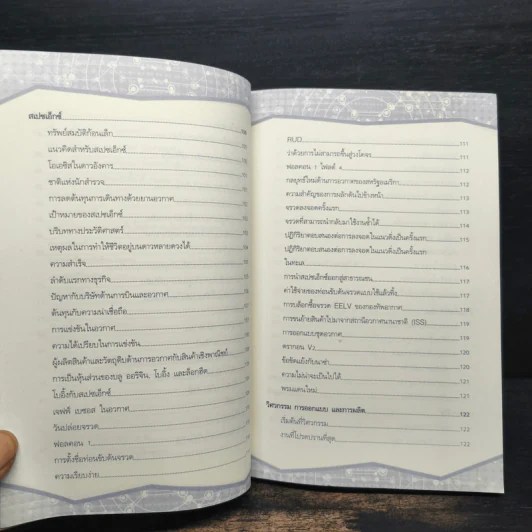 สเปซเอ็กซ์
ทรัพย์สมบัติก้อนเล็ก
แนวคิดสำหรับสเปซเอ็กซ์
โอเอซิสในดาวอังคาร
ชาติแห่งนักสำรวจ
การลดต้นทุนการเดินทางด้วยยานอวกาศ
เป้าหมายของสเปซเอ็กซ์
บริบททางประวัติศาสตร์
เหตุผลในการทำให้ชีวิตอยู่บนดาวหลายดวงได้
ความสำเร็จ
ลำดับแรกทางธุรกิจ
ปัญหากับบริษัทด้านการบินและอวกาศ
ต้นทุนกับความน่าเชื่อถือ
การแข่งขันในอวกาศ
ความได้เปรียบในการแข่งขัน
ผู้ผลิตสินค้าและวัตถุดิบด้านการอวกาศกับสินค้าเชิงพาณิชย์
การเป็นหุ้นส่วนของบลู ออริจิน, โบอิ้ง และล็อกฮีด
โบอิ้งกับสเปซเอ็กซ์
เจฟฟ์ เบซอส ในอวกาศ
วันปล่อยจรวด
ฟอลคอน 1
การตั้งชื่อท่อนขับดันจรวด
ความเรียบง่าย
RUD 111
ว่าด้วยการไม่สามารถขึ้นสู่วงโคจร 111
ฟอลคอน 1 ไฟลต์ 4 112
กลยุทธ์ใหม่ด้านการอวกาศของสหรัฐอเมริกา 112
ความสำคัญของการผลักดันไปข้างหน้า 113
จรวดลงจอดครั้งแรก 114
จรวดที่สามารถนำกลับมาใช้งานซ้ำได้ 115
ปฏิกิริยาตอบสนองต่อการลงจอดในแนวดิ่งเป็นครั้งแรก 115
ปฏิกิริยาตอบสนองต่อการลงจอดในแนวดิ่งเป็นครั้งแรก
ในทะเล 116
การนำสเปซเอ็กซ์ออกสู่สาธารณชน 117
ค่าใช้จ่ายของท่อนขับดันจรวดแบบใช้แล้วทิ้ง 117
การบล็อกซื้อจรวด EELV ของกองทัพอากาศ 118
การขนย้ายสินค้าไปมาจากสถานีอวกาศนานาชาติ (ISS) 119
การออกแบบชุดอวกาศ 119
ดรากอน V2 120
ข้อขัดแย้งกับนาซ่า 120
ความไม่น่าจะเป็นไปได้ 121
พรมแดนใหม่ 121
วิศวกรรม การออกแบบ และการผลิต 122
เริ่มต้นที่วิศวกรรม 122
งานที่โปรดปรานที่สุด 122